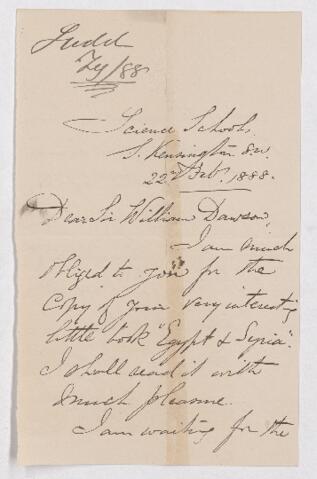 Judd
Fey/88
Science Schools,
S. Kensington S.W.
22nd Feb. 1888.
Dear Sir William Dawson,
I am much
obliged to you for the
copy of your very interesting
little book "Egypt & Syria".
I shall read it with
much pleasure.
I am waiting for the